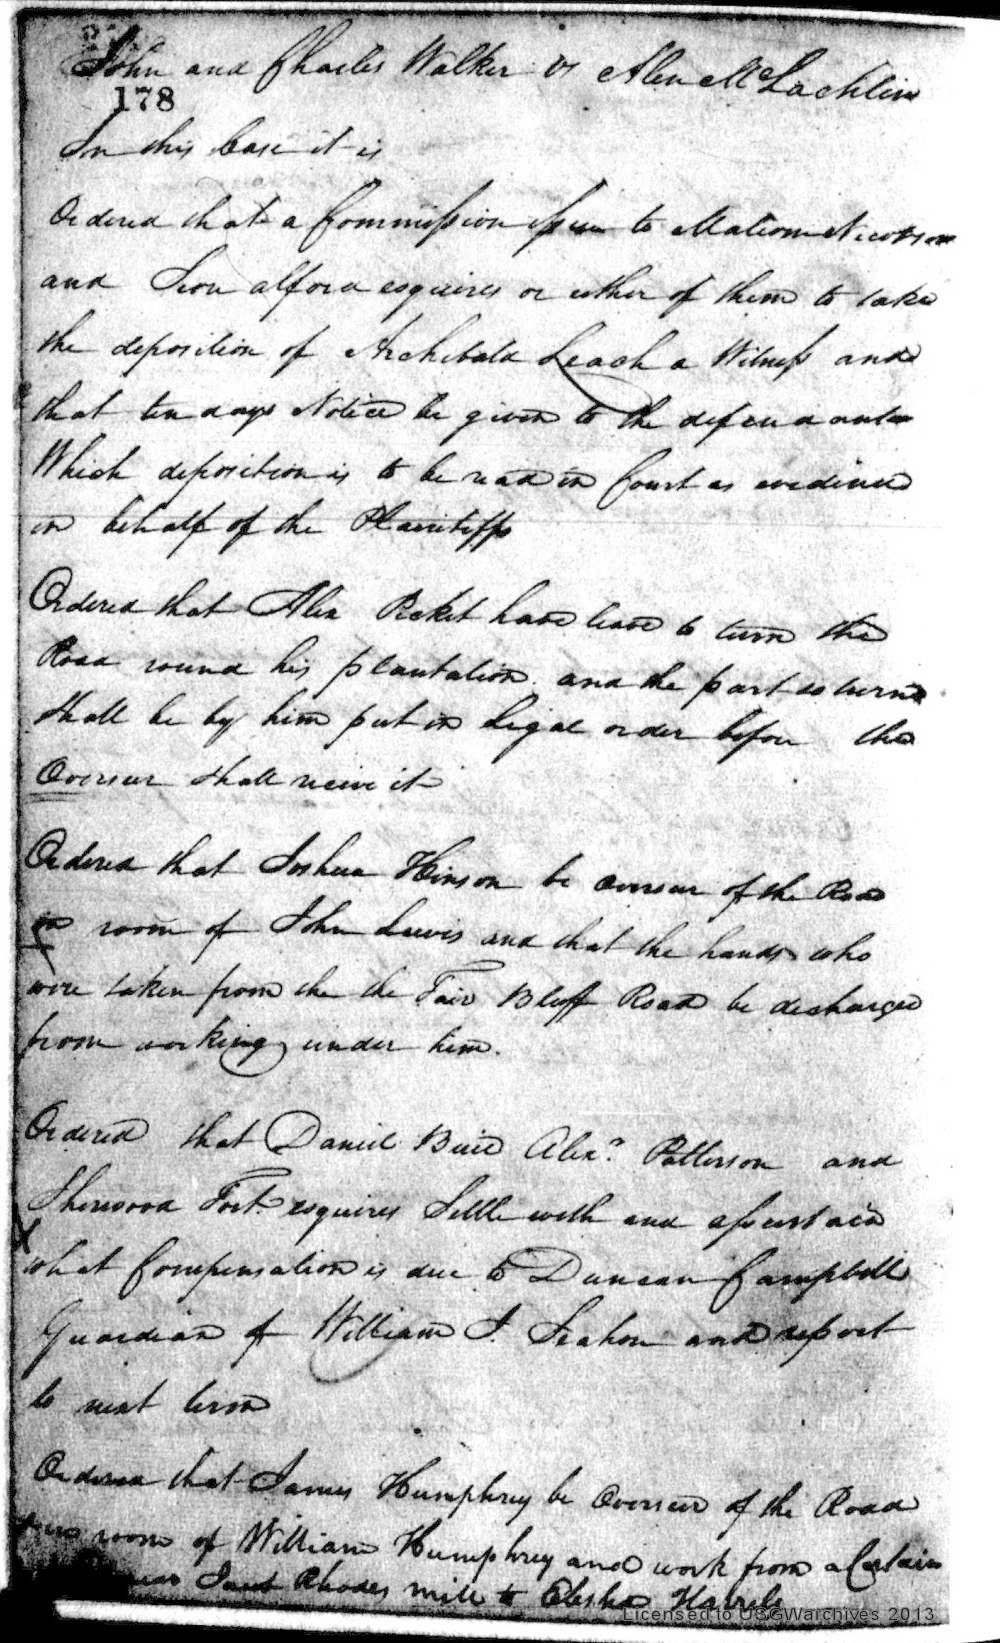 John and Charles Walker vs Alex McLachlin
178
In this Case it is
Ordered that a Commission issue to Malcom Nicolson
and Sion alford esquires or either of them to take
the deposition of Archibald Leach a Witness and
that ten days Notice be given to the defendant
Which deposition is to be read in Court as evidence
in behalf of the Plaintiffs
Ordered that Alex Picket have leave to turn the
Road round his plantation and the part so turnd
Shall be by him put in Legal order before the
Overseer shall receive it
Ordered that Joshua Hinson be overseer of the Road
in room of John Lewis and that the hands who
were taken from the the Fair Bluff Road be discharged
from working under him.
Ordered that Daniel Buie Alexr Patterson and
Sherwood Fort esquires Settle with and assertain
what Compensation is due to Duncan Campbell
Guardian of William J. and report
to next term
Ordered that James Humphrey be Overseer of the Road
room of William Humphrey and work from a Certain
near Rhodes mill to Elisha
Licensed to USGWarchives 2013